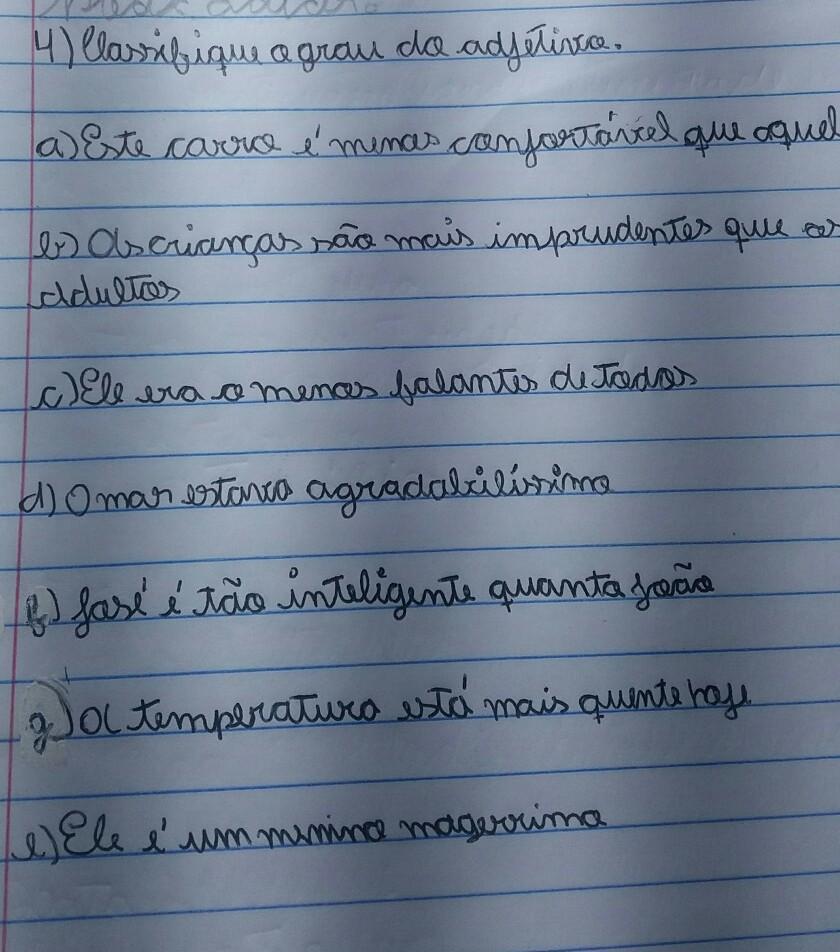 4) Classifique o grau do adjetivo.
a) Este carro é menos confortável que aquel
b) As crianças são mais imprudentes que os
adultos
c) Ele era o menos falantes de todos
d) O mar estava agradabilíssimo
f) José é tão inteligente quanto João
g) A temperatura está mais quente hoje
e) Ele é um menino magerrimo